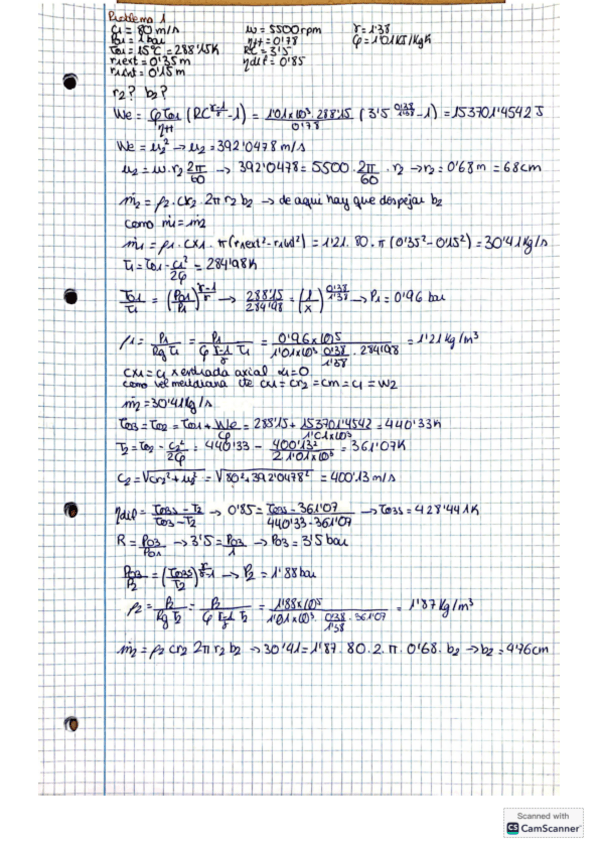 Problema 1
C1 = 80 m/s    w = 5500 rpm    γ = 1'38
P01 = 1 bar    ηtt = 0'78    Cp = 1'01 KJ/KgK
T01 = 15°C = 288'15K    RC = 3'5
r1ext = 0'35 m    ηdif = 0'85
r1int = 0'15 m
r2? b2?
We = CpT01/ηtt (RC^(γ-1/γ) - 1) = 1'01x10³ · 288'15/0'78 (3'5^(0'38/1'38) - 1) = 153701'4542 J
We = u2² → u2 = 392'0478 m/s
u2 = w · r2 2π/60 → 392'0478 = 5500 · 2π/60 · r2 → r2 = 0'68 m = 68 cm
ṁ2 = ρ2 · Cr2 · 2π r2 b2 → de aqui hay que despejar b2
como ṁ1 = ṁ2
ṁ1 = ρ1 · Cx1 · π(r1ext² - r1int²) = 1'21 · 80 · π (0'35² - 0'15²) = 30'41 kg/s
T1 = T01 - C1²/2Cp = 284'98 K
T01/T1 = (P01/P1)^(γ-1/γ) → 288'15/284'98 = (1/x)^(0'38/1'38) → P1 = 0'96 bar
ρ1 = P1/Rg T1 = P1/Cp γ-1/γ T1 = 0'96x10⁵/1'01x10³ 0'38/1'38 · 284'98 = 1'21 kg/m³
Cx1 = C1 x entrada axial α1 = 0
como vel meridiana cte Cx1 = Cr2 = Cm = C1 = W2
ṁ2 = 30'41 kg/s
T03 = T02 = T01 + We/Cp = 288'15 + 153701'4542/1'01x10³ = 440'33K
T2 = T02 - C2²/2Cp = 440'33 - 400'13²/2 1'01x10³ = 361'07K
C2 = √Cr2² + u2² = √80² + 392'0478² = 400'13 m/s
ηdif = T03s - T2/T03 - T2 → 0'85 = T03s - 361'07/440'33 - 361'07 → T03s = 428'441K
R = P03/P01 → 3'5 = P03/1 → P03 = 3'5 bar
P03/P2 = (T03s/T2)^(γ/γ-1) → P2 = 1'88 bar
ρ2 = P2/Rg T2 = P2/Cp γ-1/γ T2 = 1'88x10⁵/1'01x10³ · 0'38/1'38 · 361'07 = 1'87 kg/m³
ṁ2 = ρ2 Cr2 2π r2 b2 → 30'41 = 1'87 · 80 · 2 · π · 0'68 · b2 → b2 = 4'76 cm
Scanned with
CS CamScanner